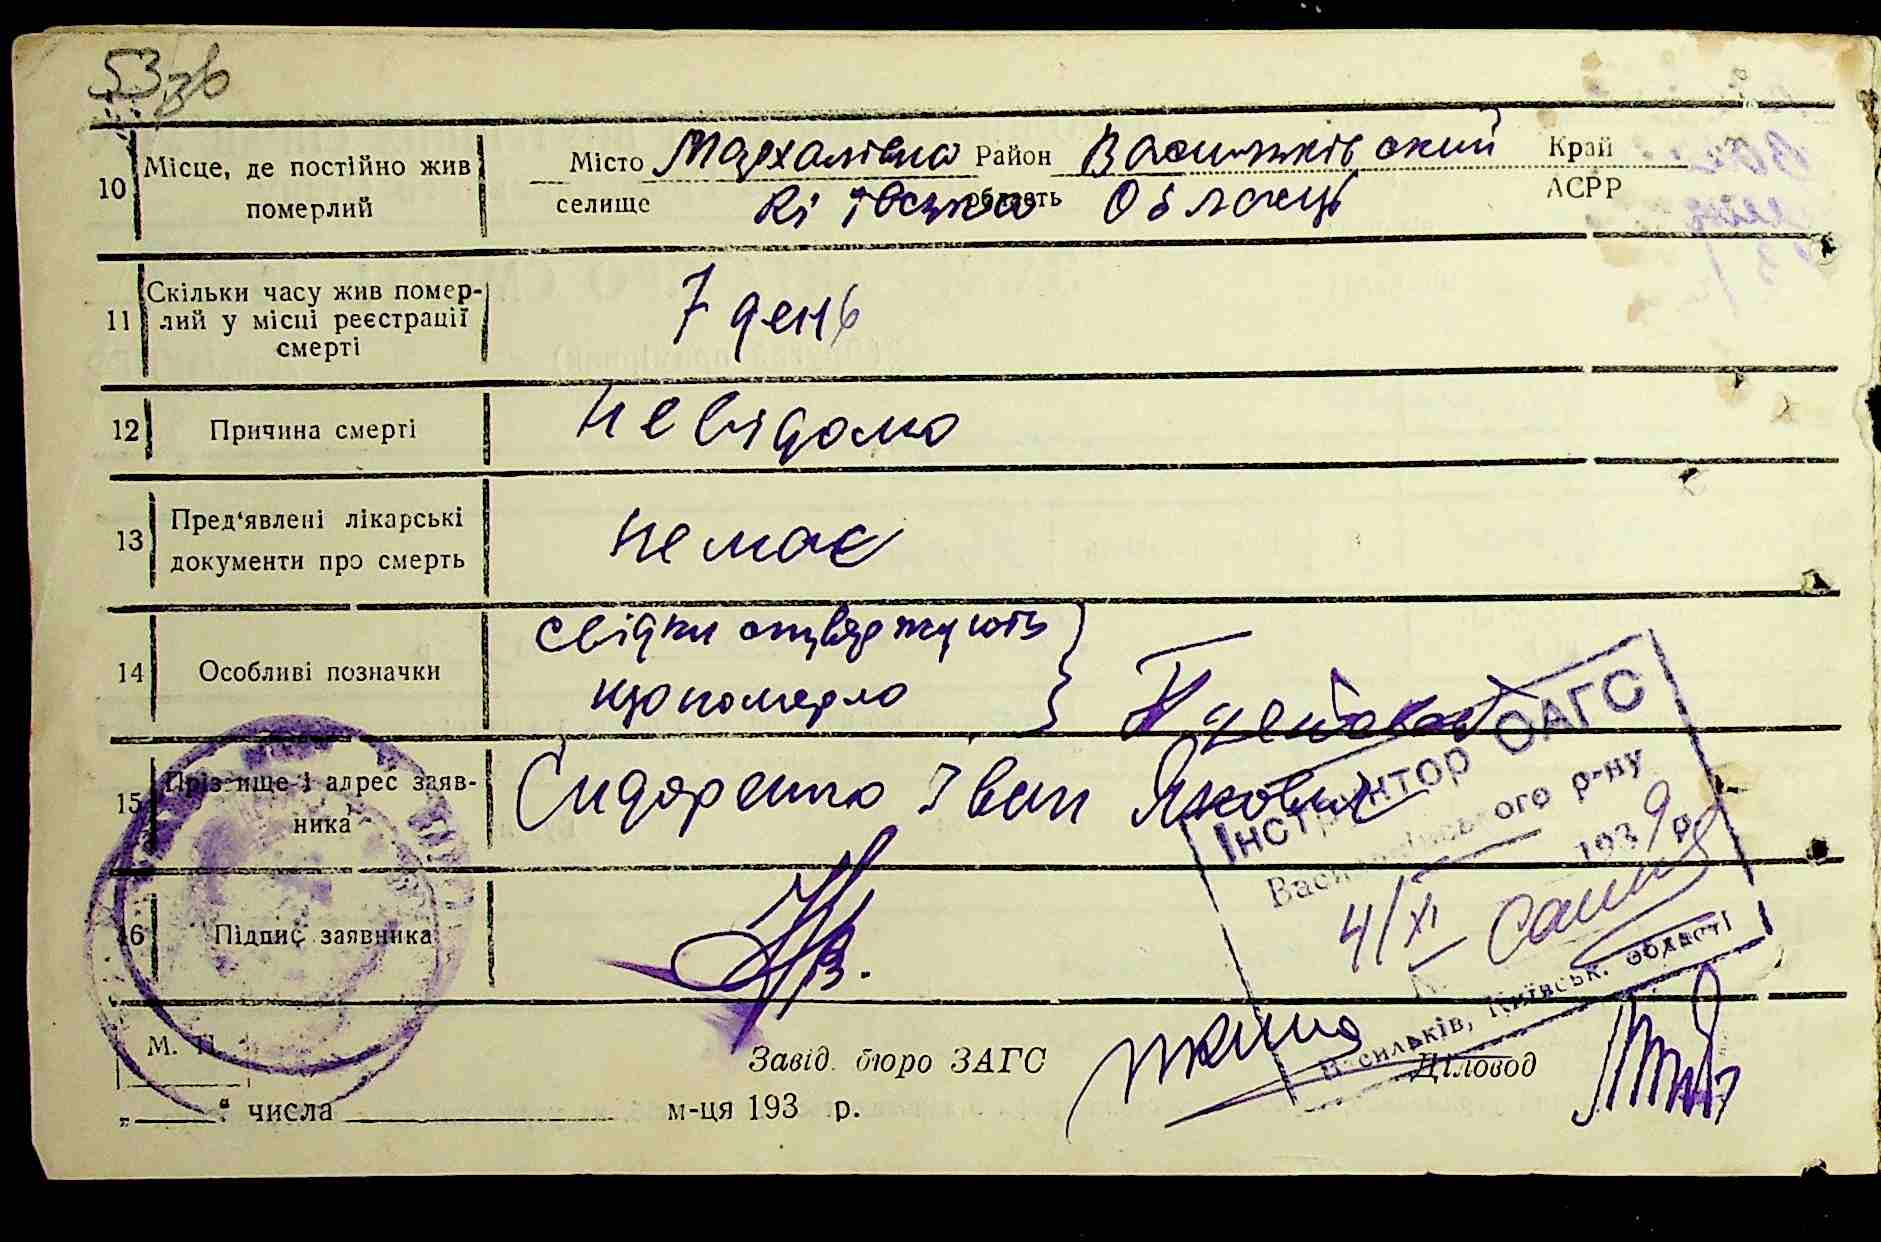 53 зв
10 Місце, де постійно жив померлий
Місто Мархалівка Район Васильківський Край
селище Київська область Область АСРР
11 Скільки часу жив помер-
лий у місці реєстрації
смерті
7 день
12 Причина смерті
невідомо
13 Пред'явлені лікарські
документи про смерть
немає
14 Особливі позначки
свідки стверджують
що померло
15 Прізвище і адрес заяв-
ника
Сидоренко Іван Якович
16 Підпис заявника
Інструктор ОАГС
Васильківського р-ну
4/XI 1939 р.
м. Васильків, Київськ. області
М. П.
Завід. бюро ЗАГС
Діловод
„ “ числа м-ця 193 р.